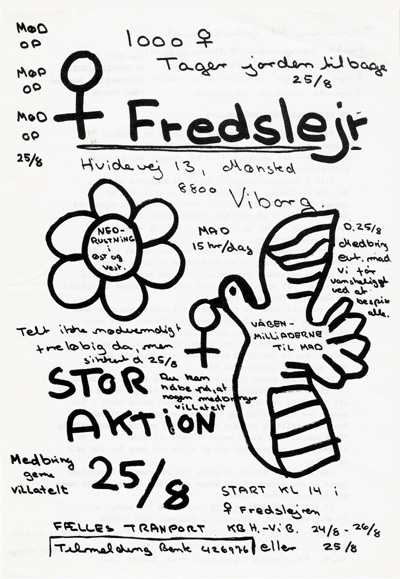 MØD
OP
MØD
OP
MØD
OP
25/8
1000 ♀
Tager jorden tilbage
25/8
♀ Fredslejr
Hvidevej 13, Mønsted
8800 Viborg.
NED-
RUSTNING
i
Øst og
Vest.
MAD
15 kr/dag
D. 25/8
Medbring
evt. mad
vi får
vanskeligt
ved at
bespise
alle.
VÅBEN-
MILLIARDERNE
TIL MAD
Telt ikke nødvendigt
foreløbig da, men
sikkert d 25/8
STOR
AKTION
Du kan
håbe på, at
nogen medbringer
villatelt
Medbring
gerne
villatelt
25/8
START KL 14 i
♀ Fredslejren
FÆLLES TRANPORT KBH.-VIB. 24/8 - 26/8
Tilmeldung Bente 426976 eller 25/8